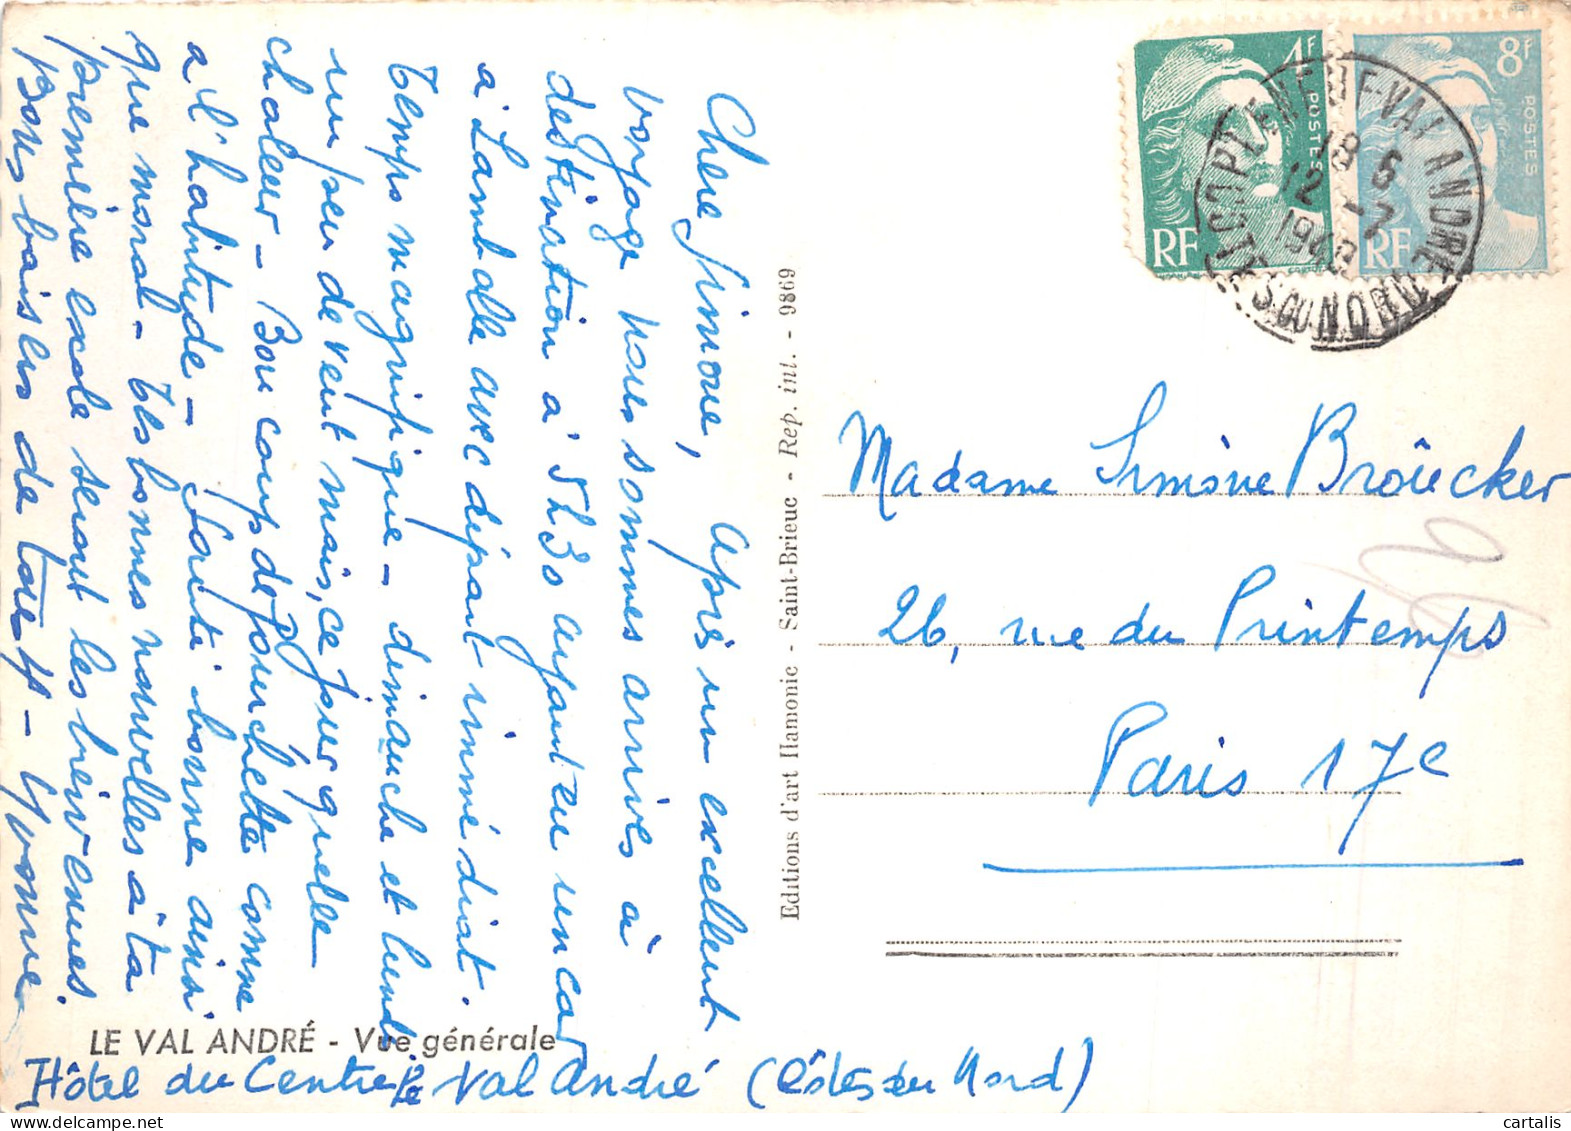 Chère Simone, Après un excellent
voyage nous sommes arrivés à
destination à 5h30 ayant eu un car
à Lamballe avec départ immédiat.
Temps magnifique - dimanche et lundi
un peu de vent mais, ce jour quelle
chaleur - Bon coup de fourchette comme
à l'habitude - Santé bonne ainsi
que moral - Tes bonnes nouvelles à ta
première escale seront les bienvenues.
Bons baisers de tous - Yvonne
LE VAL ANDRÉ - Vue générale
Hôtel du Centre Le Val André (Côtes du Nord)
Editions d'art Hamonic - Saint-Brieuc - Rep. int. - 9869
4F
POSTES
RF
8F
POSTES
RF
PLENEUF-VAL ANDRE
18 6
12 -7
COTES DU NORD
Madame Simone Broëcker
26, rue du Printemps
Paris 17e
cartalis